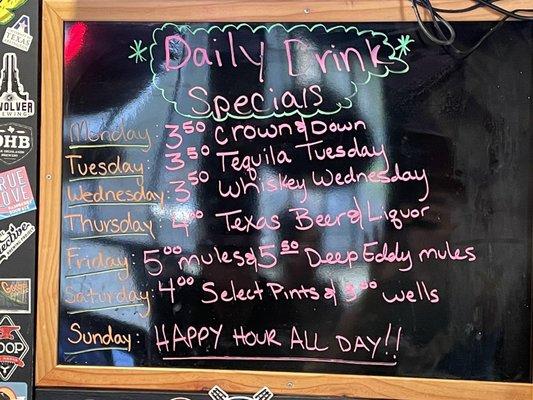 Daily Drink
Specials
Monday: 3⁵⁰ Crown & Down
Tuesday: 3⁵⁰ Tequila Tuesday
Wednesday: 3⁵⁰ Whiskey Wednesday
Thursday: 4⁰⁰ Texas Beer & Liquor
Friday: 5⁰⁰ mules & 5⁵⁰ Deep Eddy mules
Saturday: 4⁰⁰ Select Pints & 3⁰⁰ wells
Sunday: HAPPY HOUR ALL DAY!!
TEXAS
VOLVER
BREWING
OHB
TRUE
LOVE